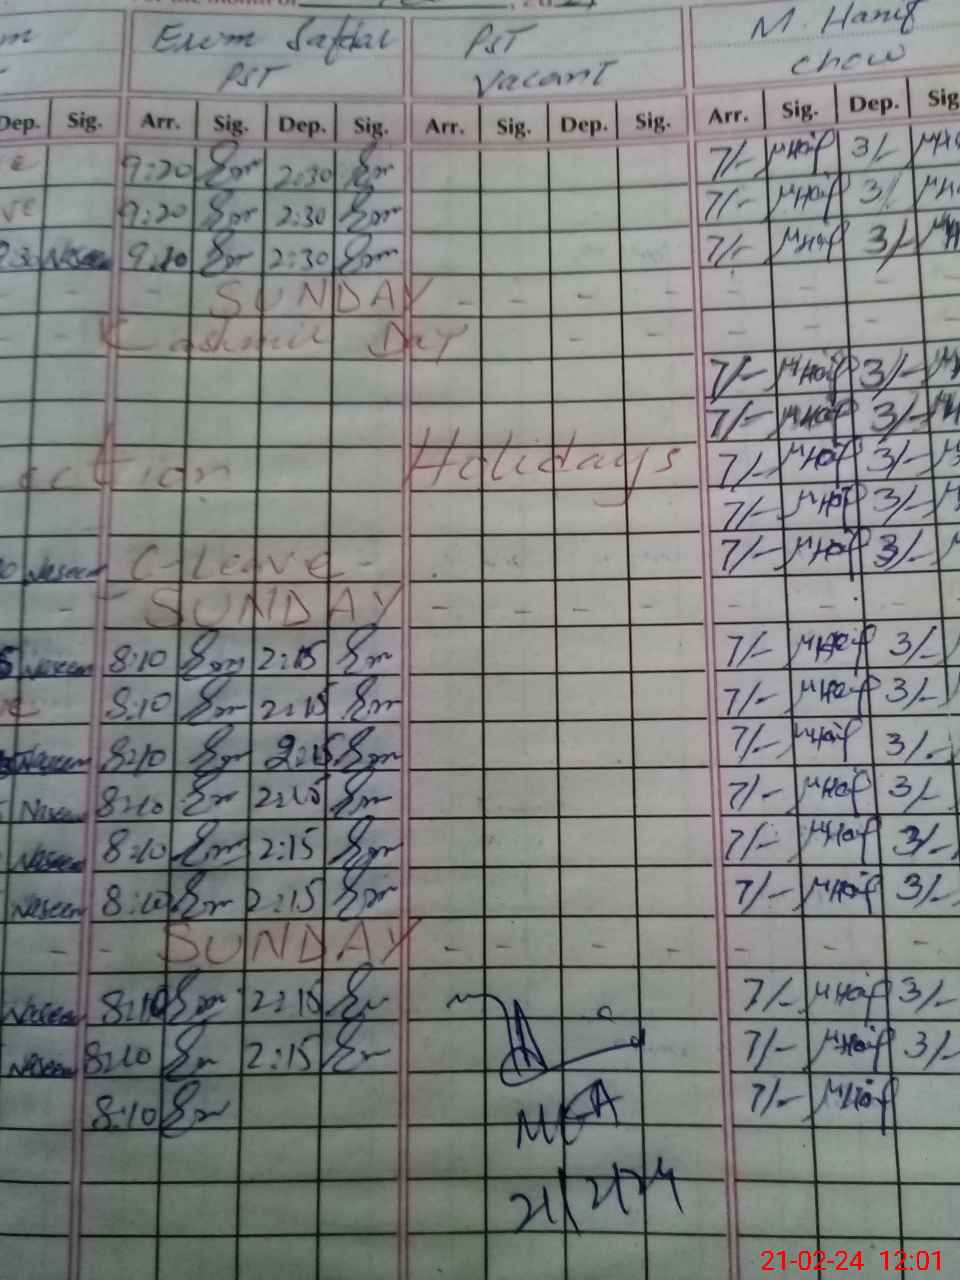 For the month of
Erum Safdar PST M. Hanif
PST Vacant Chow
Dep. Sig. Arr. Sig. Dep. Sig. Arr. Sig. Dep. Sig. Arr. Sig. Dep. Sig.
9:20 Em 2:30 Em 7/- MHaif 3/-
9:20 Em 2:30 Em 7/- MHaif 3/
Naseem 9:20 Em 2:30 Em 7/- MHaif 3/-
- - - - SUNDAY - - - - - - -
Kashmir Day - - - - -
7/- MHaif 3/-
7/- MHaif 3/-
ection Holidays 7/- MHaif 3/-
7/- MHaif 3/-
Naseem C-Leave - 7/- MHaif 3/-
- - SUNDAY - - - - - - -
Naseem 8:10 Em 2:15 Em 7/- MHaif 3/-
8:10 Em 2:15 Em 7/- MHaif 3/-
Naseem 8:10 Em 2:15 Em 7/- MHaif 3/-
Naseem 8:10 Em 2:15 Em 7/- MHaif 3/-
Naseem 8:10 Em 2:15 Em 7/- MHaif 3/-
Naseem 8:10 Em 2:15 Em 7/- MHaif 3/-
- - SUNDAY - - - - - - -
Naseem 8:10 Em 2:15 Em 7/- MHaif 3/-
Naseem 8:10 Em 2:15 Em 7/- MHaif 3/-
8:10 Em 7/- MHaif
MEA
21/2/24
21-02-24 12:01